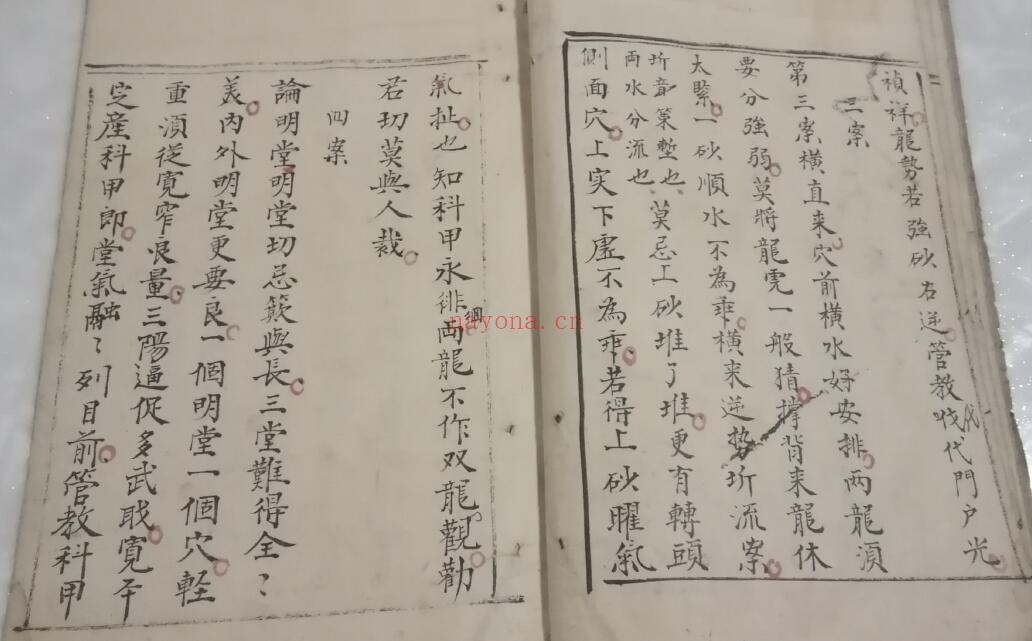 禎祥龍勢若強砂右逆管教代代門戶光
三案
第三案横直来穴前横水好安排两龍須
要分強弱莫將龍虎一般猜撑背来龍休
太緊一砂順水不為乖横来逆势圻流案
圻章策塹也莫忌工砂堆了堆更有轉頭
两水分流也
側面穴上实下虛不為乖若得上砂曜氣
氣扯也知科甲永徘徊两龍不作双龍觀勸
君切莫與人裁
四案
論明堂明堂切忌簌與長三堂難得全〻
美内外明堂更要良一個明堂一個穴軽
重須從寛窄良量三陽逼促多武戝寛平
定産科甲郎堂氣融〻列目前管教科甲
nayona.cn